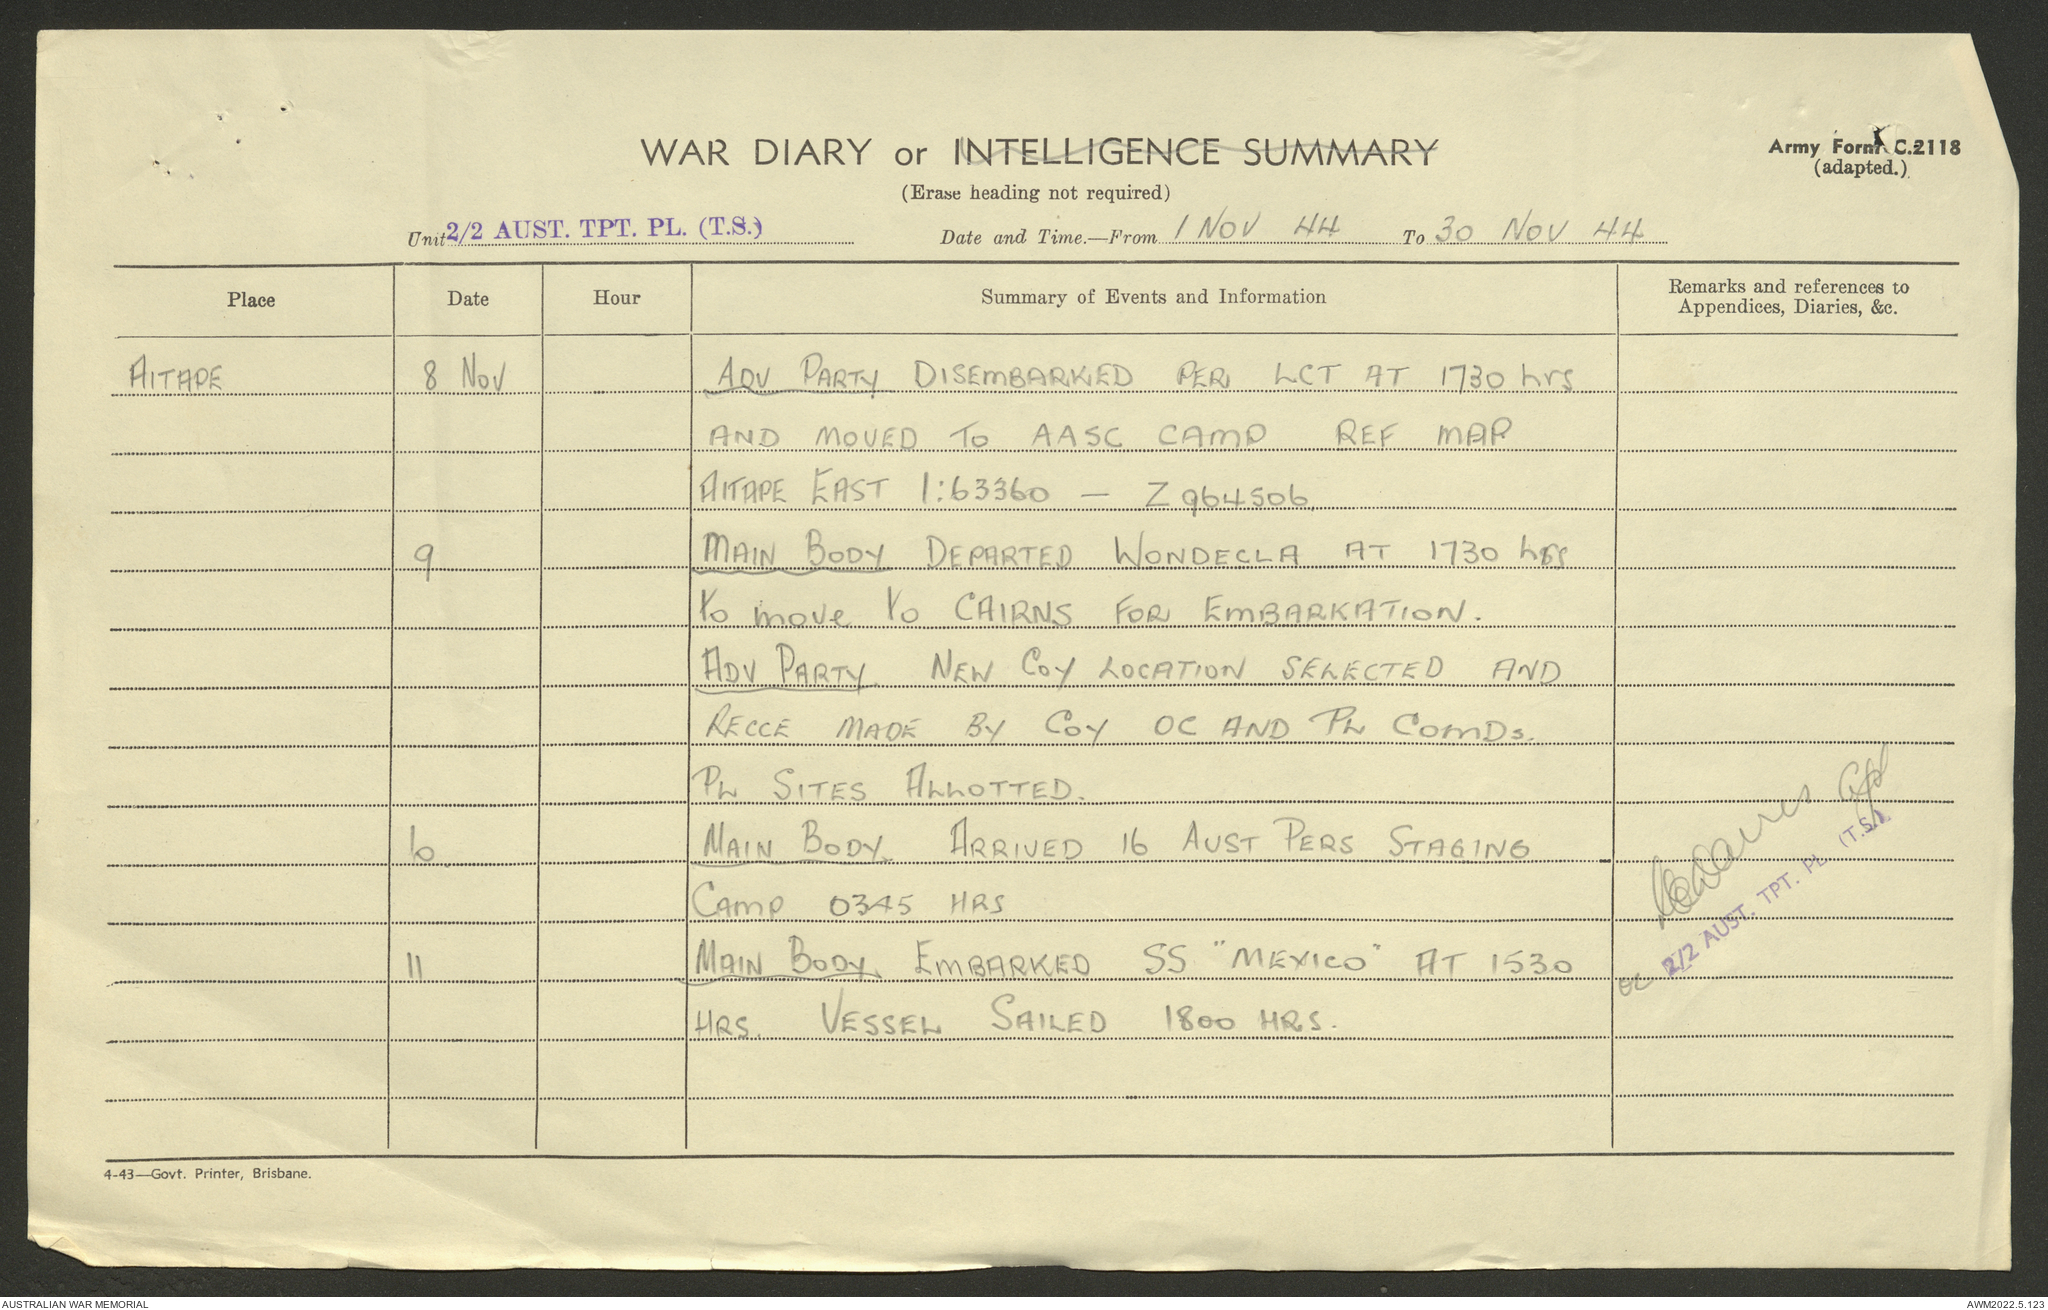 WAR DIARY or INTELLIGENCE SUMMARY
(Erase heading not required)
Army Form C.2118
(adapted.)
Unit 2/2 AUST. TPT. PL. (T.S.)
Date and Time.—From 1 NOV 44 To 30 NOV 44
Place Date Hour Summary of Events and Information Remarks and references to
Appendices, Diaries, &c.
AITAPE 8 NOV ADV PARTY DISEMBARKED PER LCT AT 1730 hrs
AND MOVED TO AASC CAMP REF MAP
AITAPE EAST 1:63360 — Z 964506.
9 MAIN BODY DEPARTED WONDECLA AT 1730 hrs
to move to CAIRNS FOR EMBARKATION.
ADV PARTY. NEW COY LOCATION SELECTED AND
RECCE MADE BY COY OC AND PL COMDS.
PL SITES ALLOTTED.
10 MAIN BODY. ARRIVED 16 AUST PERS STAGING
CAMP 0345 HRS
11 MAIN BODY. EMBARKED SS "MEXICO" AT 1530
HRS. VESSEL SAILED 1800 HRS.
OC 2/2 AUST. TPT. PL (T.S.)
4-43—Govt. Printer, Brisbane.
AUSTRALIAN WAR MEMORIAL
AWM2022.5.123